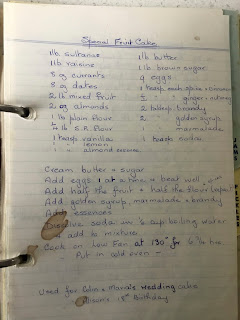 Special Fruit Cake
1 lb sultanas
1 lb raisins
8 oz currants
8 oz dates
2 lb mixed fruit
2 oz almonds
1 lb plain flour
1/4 lb S.R. flour
1 tbsp vanilla
" lemon
" almond essence
1 lb butter
1 lb brown sugar
9 eggs
1 tsp each spice + cinnamon
1/2 " ginger + nutmeg
2 tblsp brandy
2 " golden syrup
1 " marmalade
1 tsp soda
Cream butter + sugar
Add eggs 1 at a time + beat well
Add half the fruit + half the flour
Add golden syrup, marmalade + brandy
Add essences
Dissolve soda in 1/2 cup boiling water
+ add to mixture
Cook on Low Fan at 130° for 6 1/2 hrs
Put in cold oven -
Used for Colin & Maria's wedding cake
18th Birthday